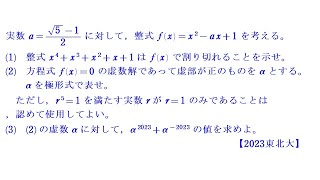 実数 a = (√5 − 1)/2 に対して，整式 f(x) = x² − ax + 1 を考える。
(1) 整式 x⁴ + x³ + x² + x + 1 は f(x) で割り切れることを示せ。
(2) 方程式 f(x) = 0 の虚数解であって虚部が正のものを α とする。
α を極形式で表せ。
ただし，r⁵ = 1 を満たす実数 r が r = 1 のみであることは
，認めて使用してよい。
(3) (2)の虚数 α に対して，α²⁰²³ + α⁻²⁰²³ の値を求めよ。
【2023東北大】